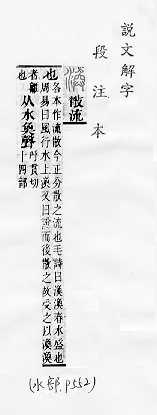 說文解字
段注本
渙 散流
也 各本作流散今正分散之流也毛詩曰渙渙春水盛也
周易曰風行水上渙又曰說而後散之故受之以渙渙
者離
也
从水奐聲 呼貫切
十四部
(水部, P552)